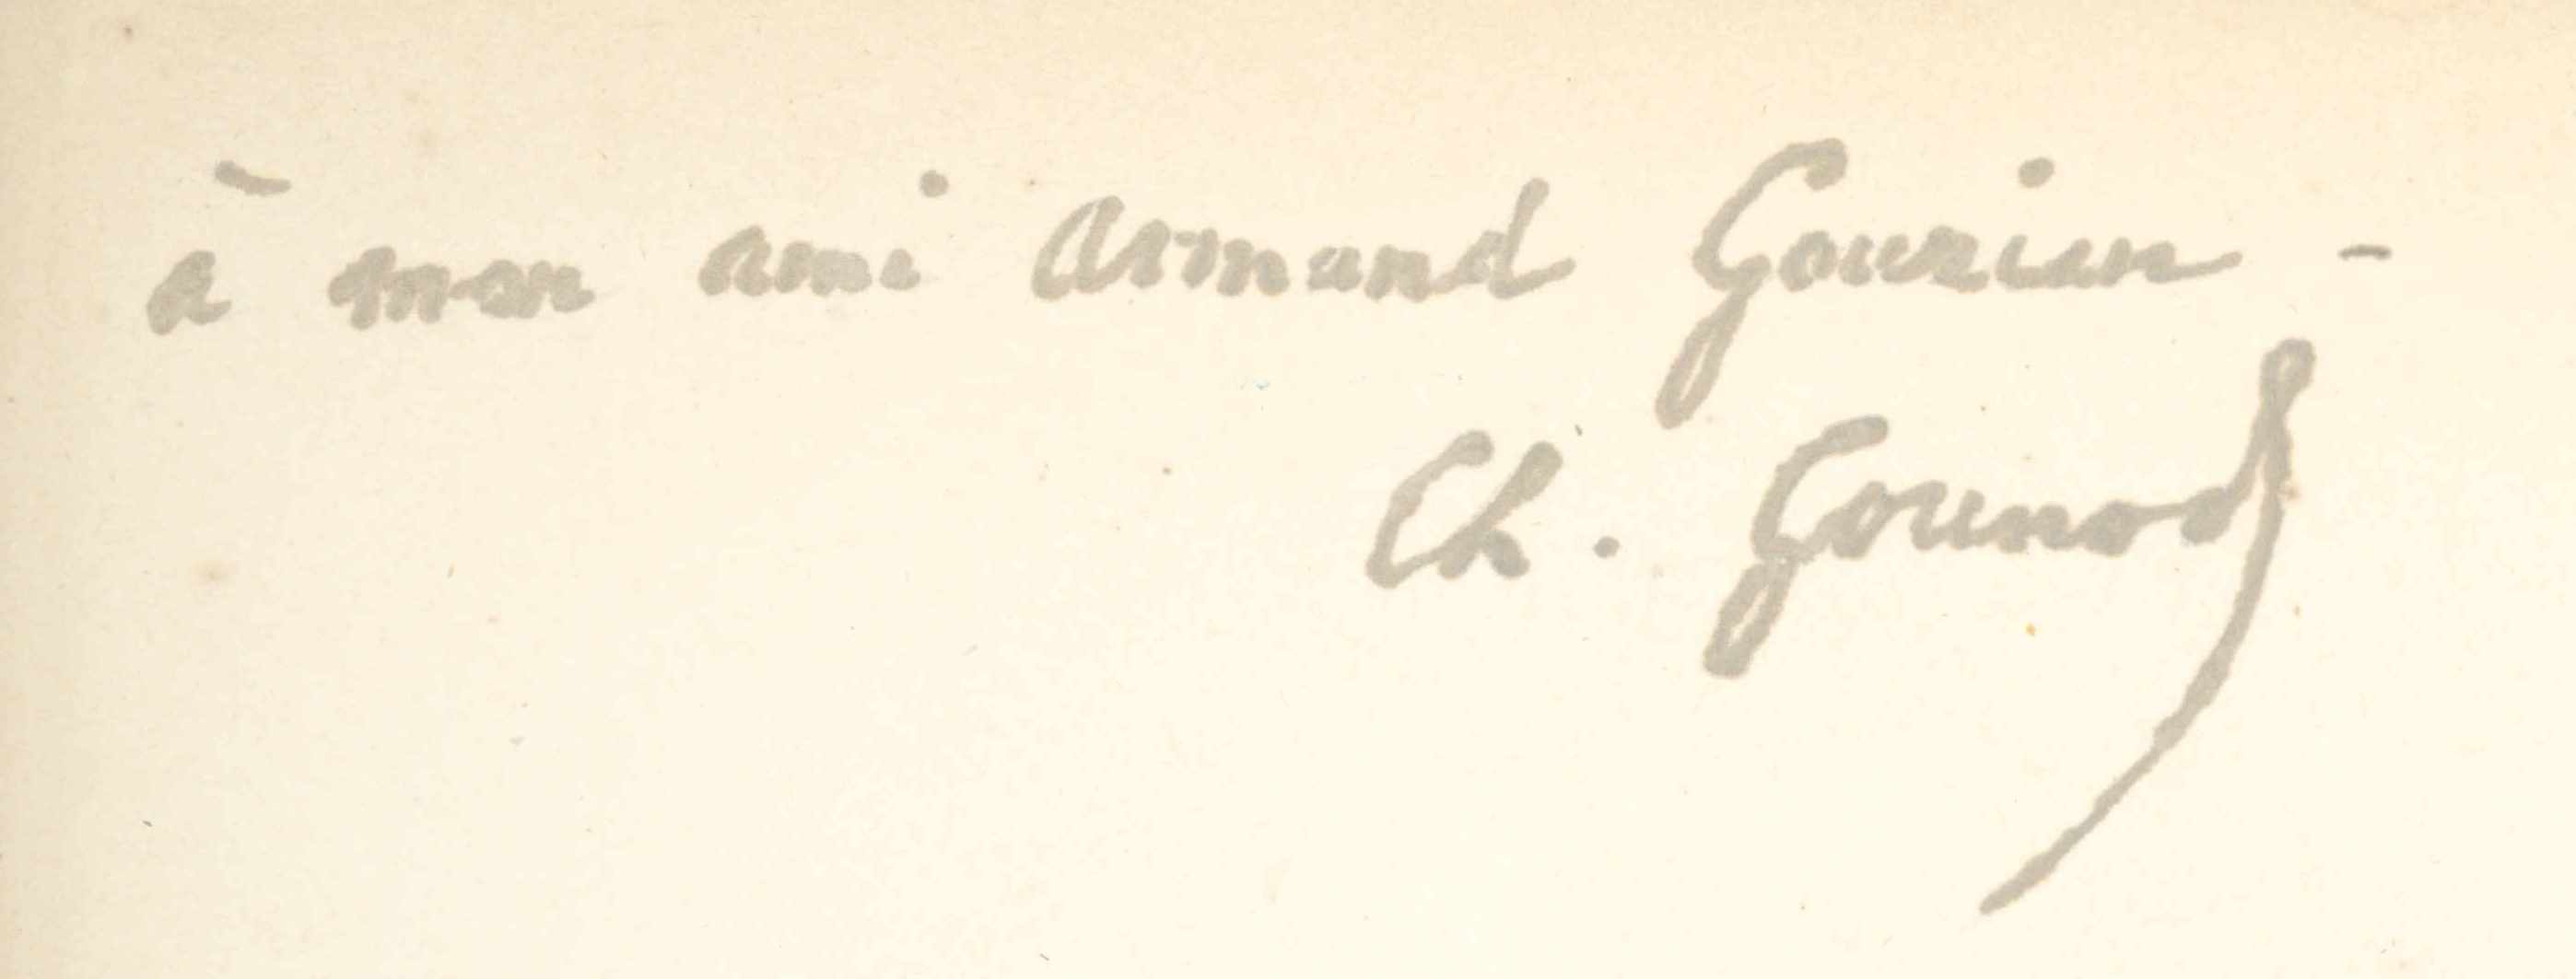 à mon ami Armand Gouzien -
Ch. Gounod